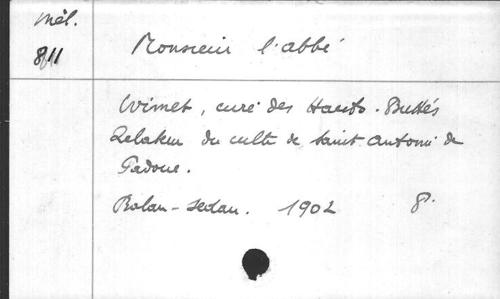 Mél.
8/11
Monsieur l'abbé
Wimet, curé des Hautes-Buttés
Zélateur du culte de Saint Antoine de
Padoue.
Balan-Sedan. 1902 8°.